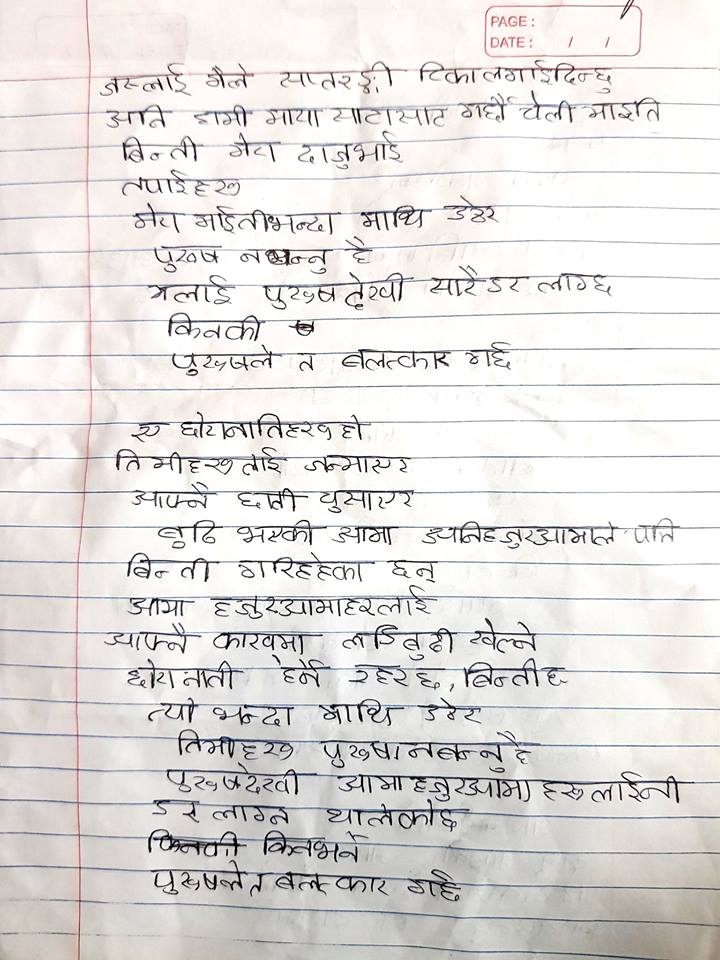 PAGE:
DATE: / /
जस्लाई मैले सातरङ्गी टिकालगाईदिन्छु
अति हामी माया साटासाट गर्छौ चेली माइति
बिन्ती मेरा दाजुभाई
तपाईहरु
मेरा माईतीभन्दा माथि उठेर
पुरुष नबन्नु है
मलाई पुरुषदेखी सारैडर लाग्छ
किनकी
पुरुषले त बलत्कार गर्छ
ए छोरानातिहरु हो
तिमीहरुलाई जन्माएर
आफ्नै छाती चुसाएर
बुढि भएकी आमा अनिहजुरआमाले पनि
बिन्ती गरिरहेका छन्
आमा हजुरआमाहरलाई
आफ्नै काखमा लडिबुडी खेल्ने
छोरानाती हेर्ने रहरछ, बिन्तीछ
त्यो भन्दा माथि उठेर
तिमीहरु पुरुष नबन्नुहै
पुरुषदेखी आमाहजुरआमाहरुलाईनी
डर लाग्न थालेकोछ
किनकी किनभने
पुरुषलेत बलत्कार गर्छ